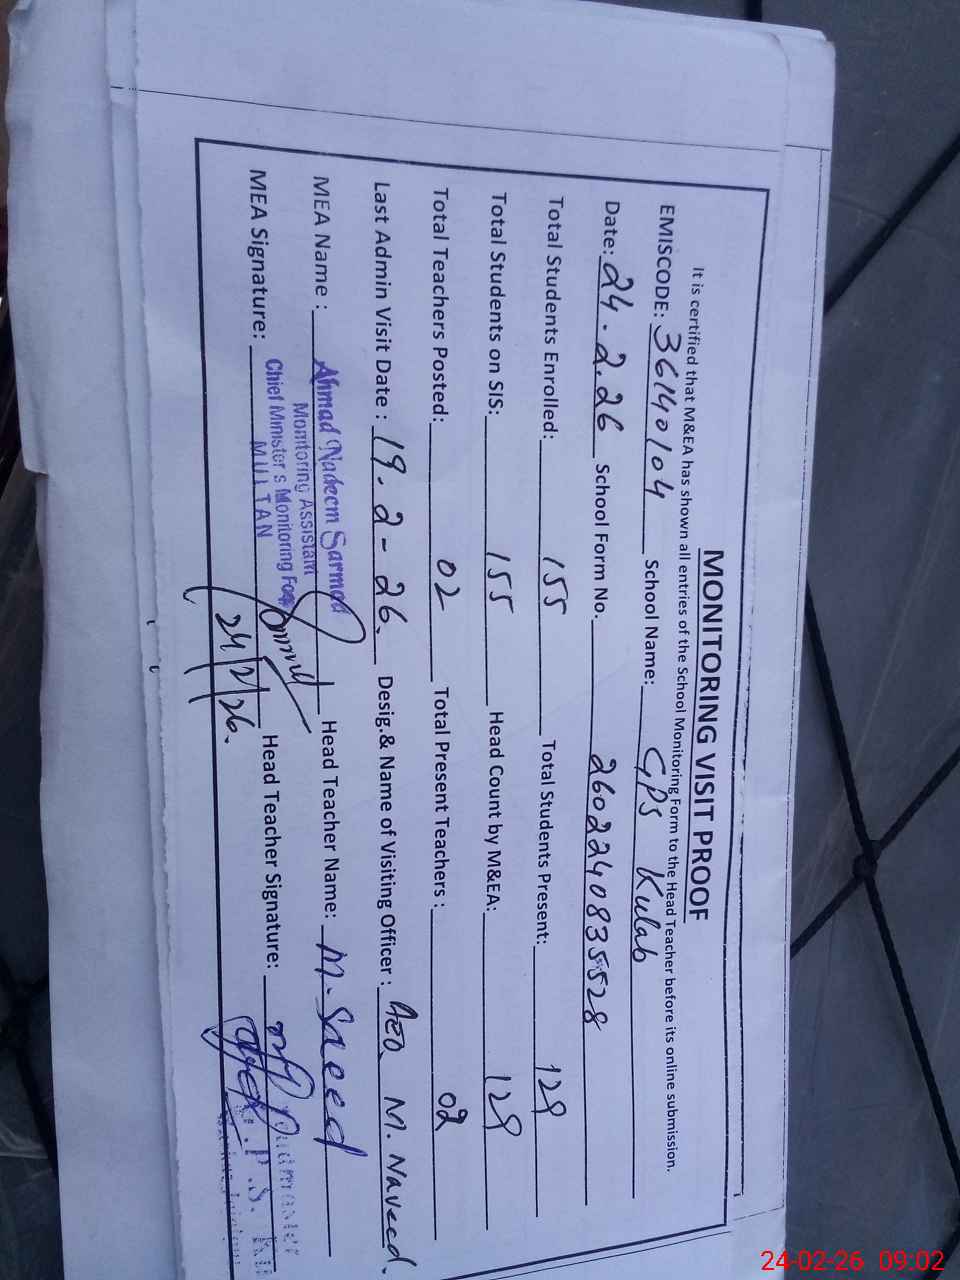 MONITORING VISIT PROOF
It is certified that M&EA has shown all entries of the School Monitoring Form to the Head Teacher before its online submission.
EMISCODE: 36140104 School Name: GPS Kulab
Date: 24.2.26 School Form No. 2602240835528
Total Students Enrolled: 155 Total Students Present: 129
Total Students on SIS: 155 Head Count by M&EA: 129
Total Teachers Posted: 02 Total Present Teachers : 02
Last Admin Visit Date : 19-2-26. Desig.& Name of Visiting Officer : AEO M. Naveed.
MEA Name : Ahmad Nadeem Sarmad Head Teacher Name: M. Saeed
Monitoring Assistant
MEA Signature: Chief Minister s Monitoring Head Teacher Signature:
MULTAN
24/2/26.
24-02-26 09:02